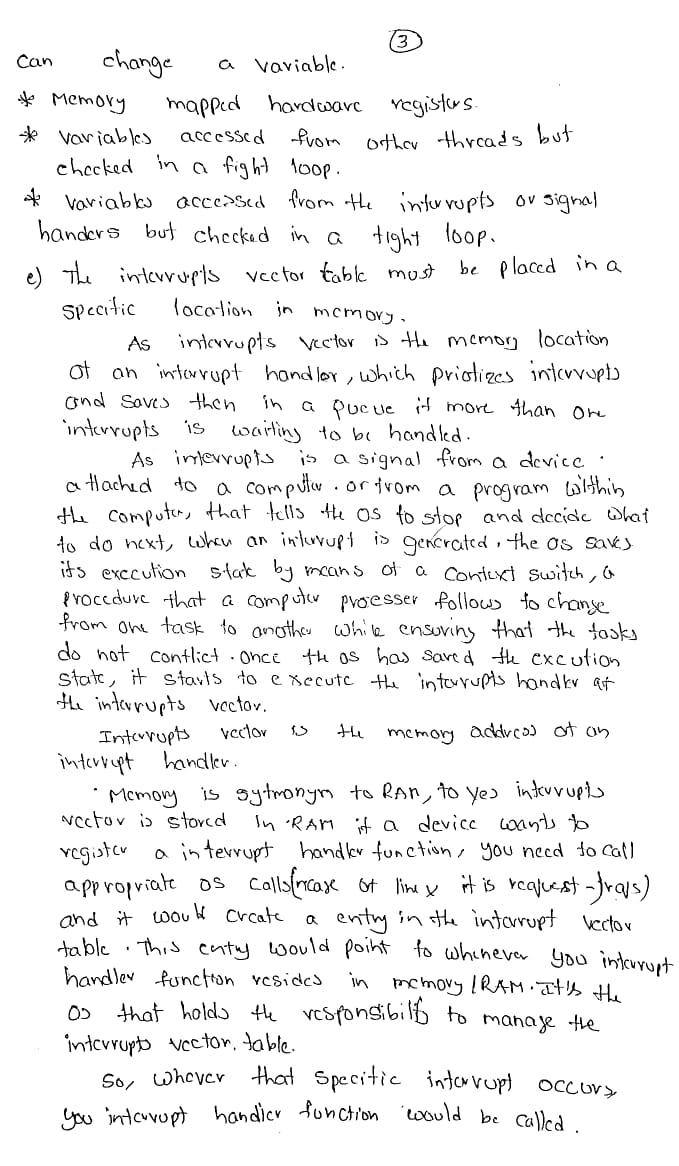 3
can change a variable.
* Memory mapped hardware registers.
* variables accessed from other threads but
checked in a fight loop.
* variables accessed from the interrupts or signal
handers but checked in a tight loop.
e) The interrupts vector table must be placed in a
specific location in memory.
As interrupts vector is the memory location
of an interrupt handler, which priotizes interrupts
and saves then in a queue if more than one
interrupts is waiting to be handled.
As interrupts is a signal from a device.
attached to a computer. or from a program within
the computer, that tells the OS to stop and decide what
to do next, when an interrupt is generated, the OS saves
its execution state by means of a context switch, a
procedure that a computer processer follows to change
from one task to another while ensuring that the tasks
do not conflict. once the OS has saved the excution
state, it starts to execute the interrupts handler at
the interrupts vector.
Interrupts vector is the memory address of an
interrupt handler.
Memory is sytmonym to RAM, to yes interrupts
vector is stored In RAM if a device wants to
register a interrupt handler function, you need to call
appropriate OS calls(incase of linux it is request-)
and it would create a entry in the interrupt vector
table. This entry would point to whenever you interrupt
handler function resides in memory/RAM. It is the
OS that holds the responsibility to manage the
interrupts vector. table.
So, whever that specific interrupt occurs,
you interrupt handler function would be called.